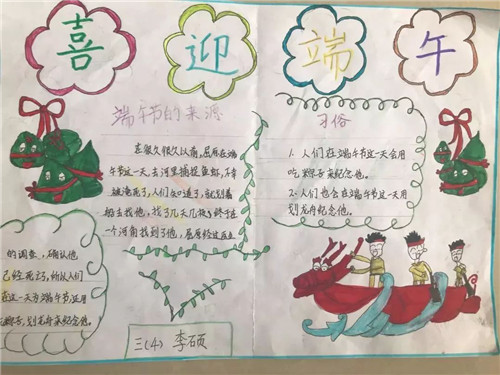 喜迎端午
端午节的来源
在很久很久以前,屈原在端
午节这一天,去河里捕捉鱼虾,不幸
被淹死了,人们知道了,就划着
船去找他,找了几天几夜,终于在
一个河角找到了他,屈原经过
的调查,确认他
已经死亡,所以人们
在这一天为端午节,运用
粽子,划龙舟来纪念他。
习俗
1. 人们在端午节这一天会用
吃粽子来纪念他。
2. 人们也会在端午节这一天用
划龙舟纪念他。
三(4) 李硕